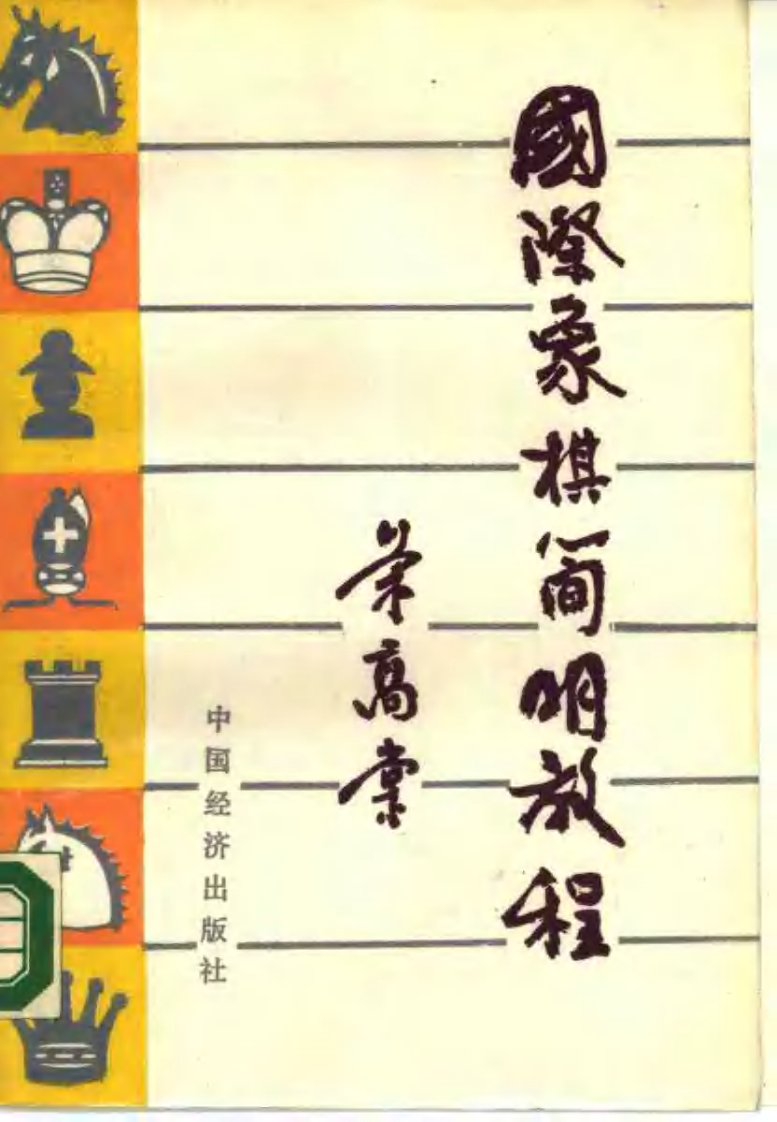 國際象棋简明教程
荣高棠
中国经济出版社